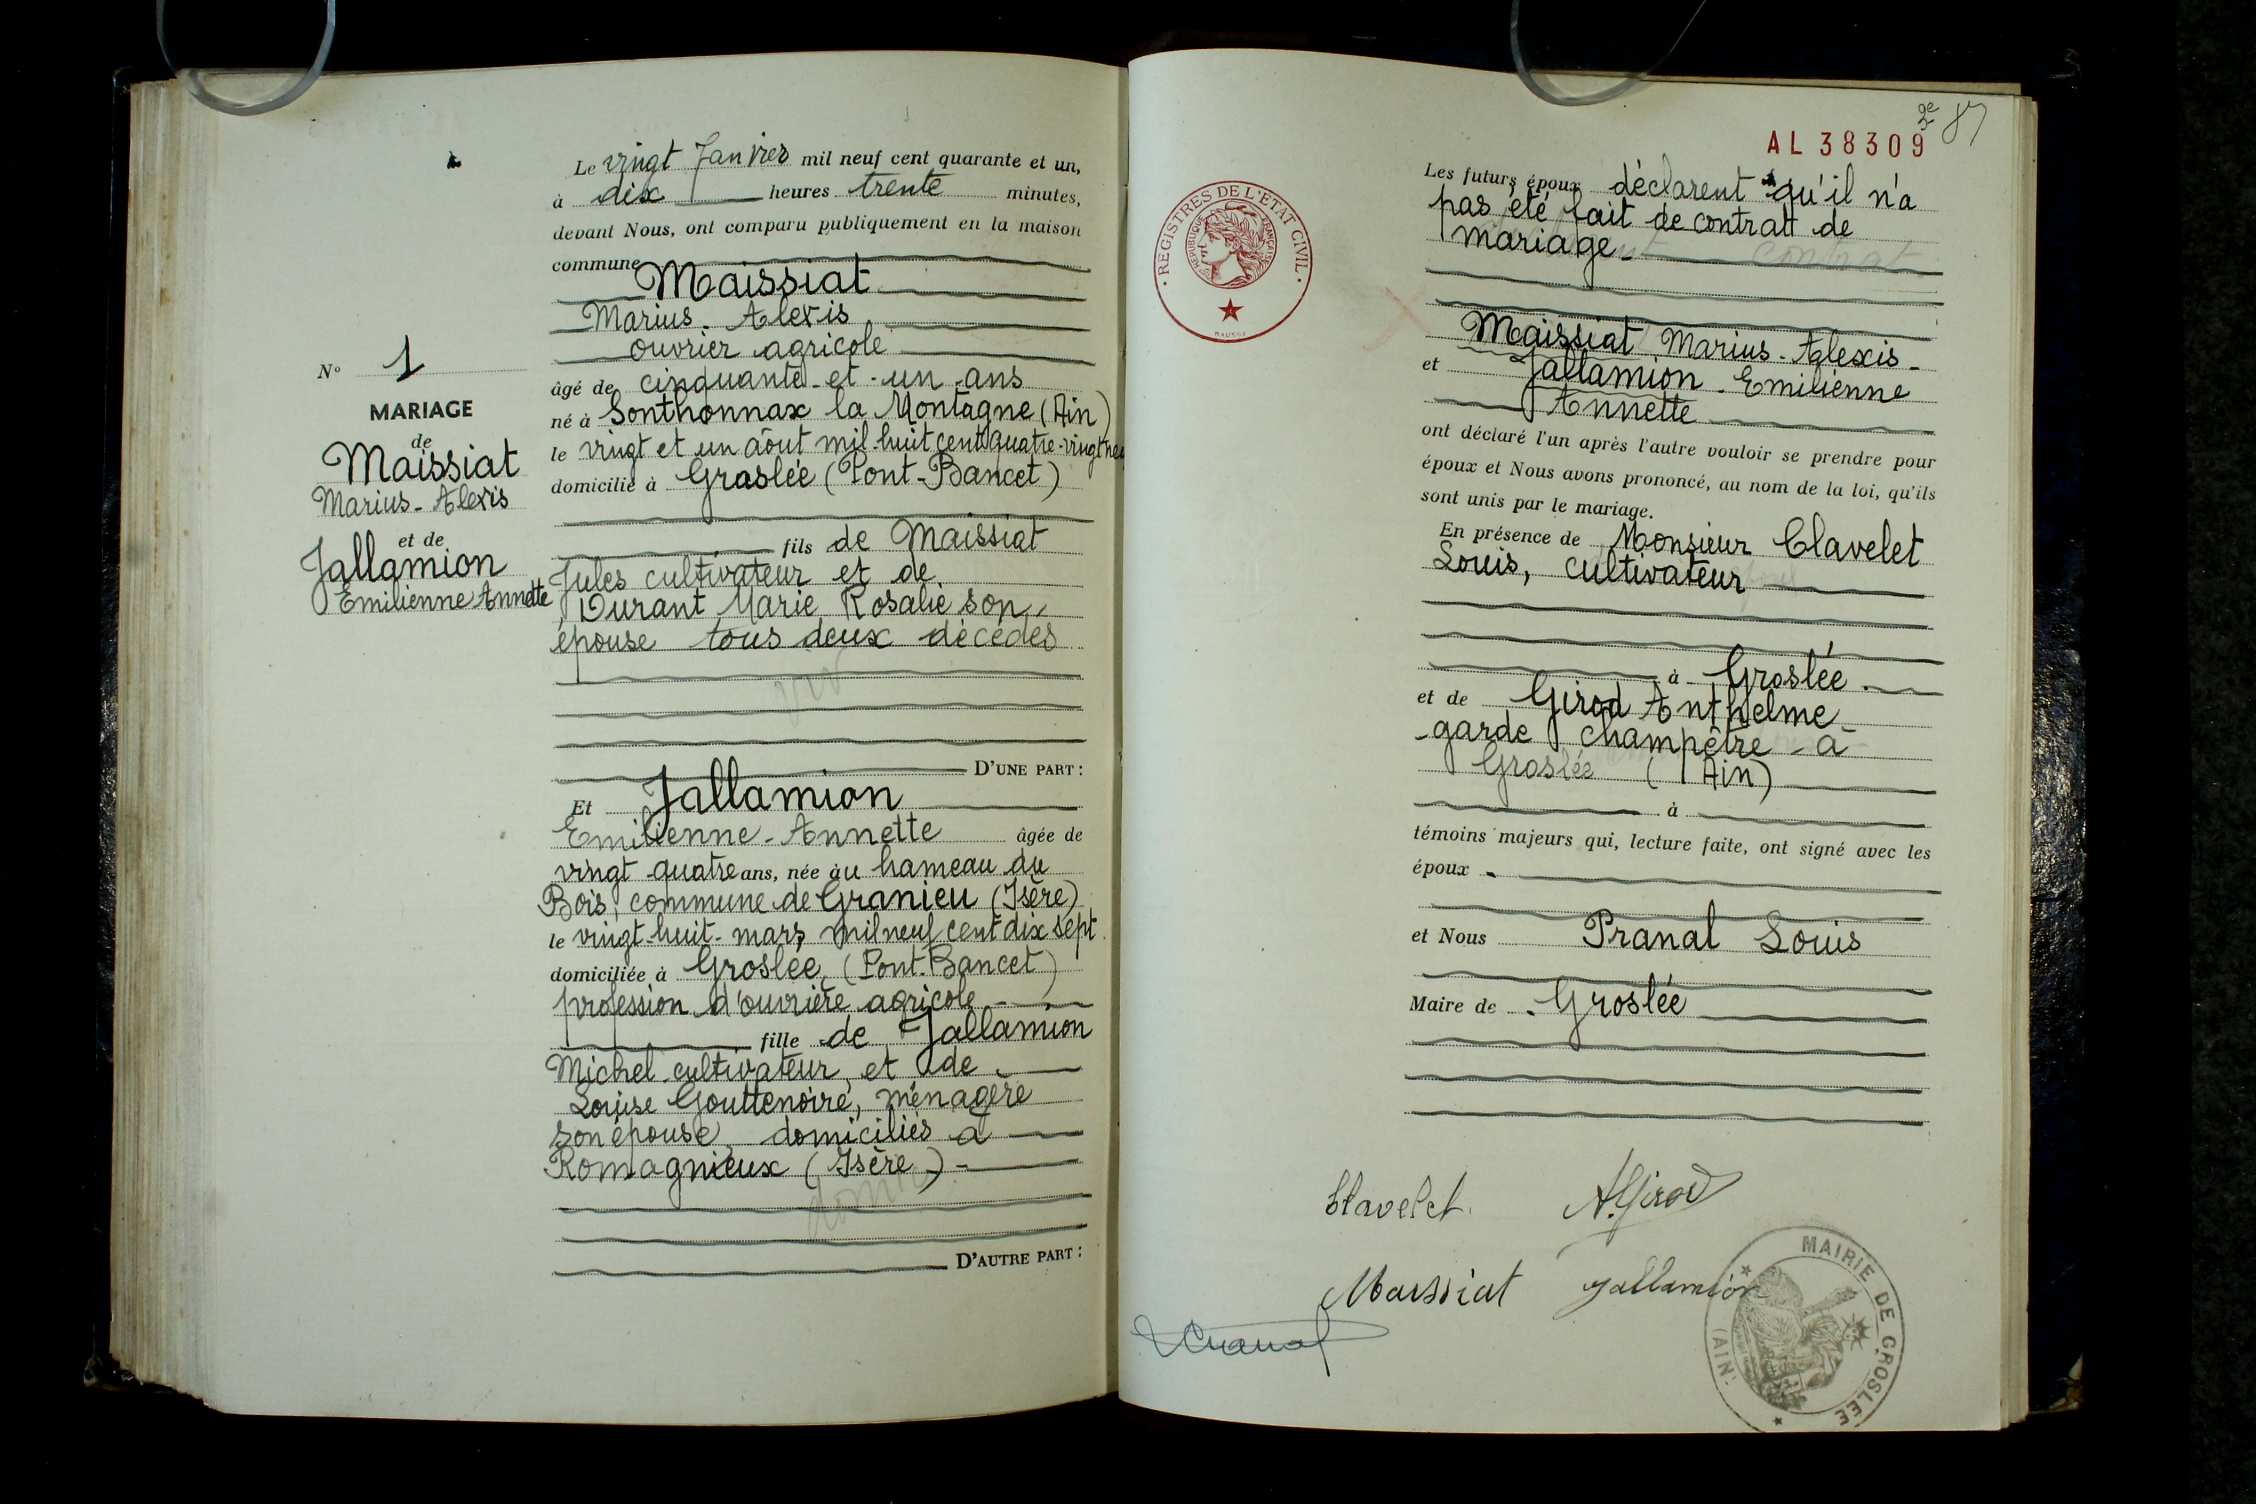 N° 1
MARIAGE
de
Maissiat
Marius-Alexis
et de
Jallamion
Emilienne Annette
Le vingt Janvier mil neuf cent quarante et un,
à dix heures trente minutes,
devant Nous, ont comparu publiquement en la maison
commune
Maissiat
Marius-Alexis
ouvrier agricole
âgé de cinquante-et-un ans
né à Sonthonnax la Montagne (Ain)
le vingt et un aôut mil huit cent quatre-vingt neuf
domicilié à Groslée (Pont-Bancet)
fils de Maissiat
Jules cultivateur et de
Durant Marie Rosalie son
épouse tous deux décédés
D'UNE PART :
Et Jallamion
Emilienne-Annette âgée de
vingt quatre ans, née au hameau du
Bois, commune de Granieu (Isère)
le vingt-huit-mars mil neuf cent dix sept
domiciliée à Groslée, (Pont-Bancet)
profession d'ouvrière agricole
fille de Jallamion
Michel cultivateur, et de
Louise Gouttenoire, ménagère
son épouse, domiciliés à
Romagnieux (Isère)
D'AUTRE PART :
2e 87
AL 38309
REGISTRES DE L'ETAT CIVIL
REPUBLIQUE FRANÇAISE
Les futurs époux déclarent qu'il n'a
pas été fait de contrat de
mariage
Maissiat Marius-Alexis
et Jallamion Emilienne
Annette
ont déclaré l'un après l'autre vouloir se prendre pour
époux et Nous avons prononcé, au nom de la loi, qu'ils
sont unis par le mariage.
En présence de Monsieur Clavelet
Louis, cultivateur
à Groslée
et de Girod Anthelme
garde champêtre à
Groslée (Ain)
à
témoins majeurs qui, lecture faite, ont signé avec les
époux
et Nous Pranal Louis
Maire de Groslée
Clavelet. A. Girod
Maissiat Jallamion
MAIRIE DE GROSLEE
(AIN)